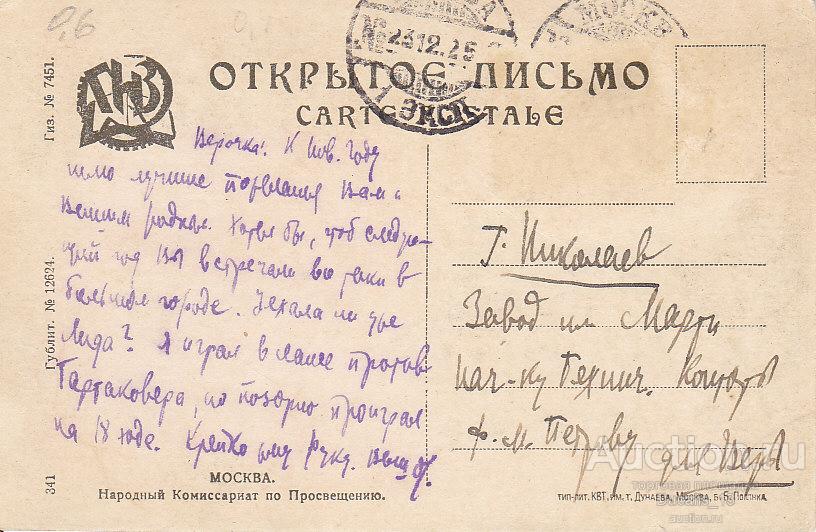 0,6
МОСКВА
23 12 25
ЭКСП.
МОСКВА
ГИЗ
ОТКРЫТОЕ ПИСЬМО
CARTE POSTALE
Гиз. № 7451.
Гублит. № 12624.
341
Верочка! К Нов. Году
шлю лучшие пожелания Вам и
Вашим родным. Хотел бы, чтоб следую-
щий год Вы встречали все таки в
большом городе. Уехала ли уже
Лида? Я играл в сеансе против
Тартаковера, но позорно проиграл
на 18 ходе. Крепко жму руку. Ваш
МОСКВА.
Народный Комиссариат по Просвещению.
Г. Николаев
Завод им Марти
нач-ку Технич. Конторы
Ф. М. Петрову
для Веры
ТИП.-ЛИТ. КВТ. ИМ. Т. ДУНАЕВА, МОСКВА, Б. Б. ПОЛЯНКА.
Auction.ru
торговая площадка
auction.ru